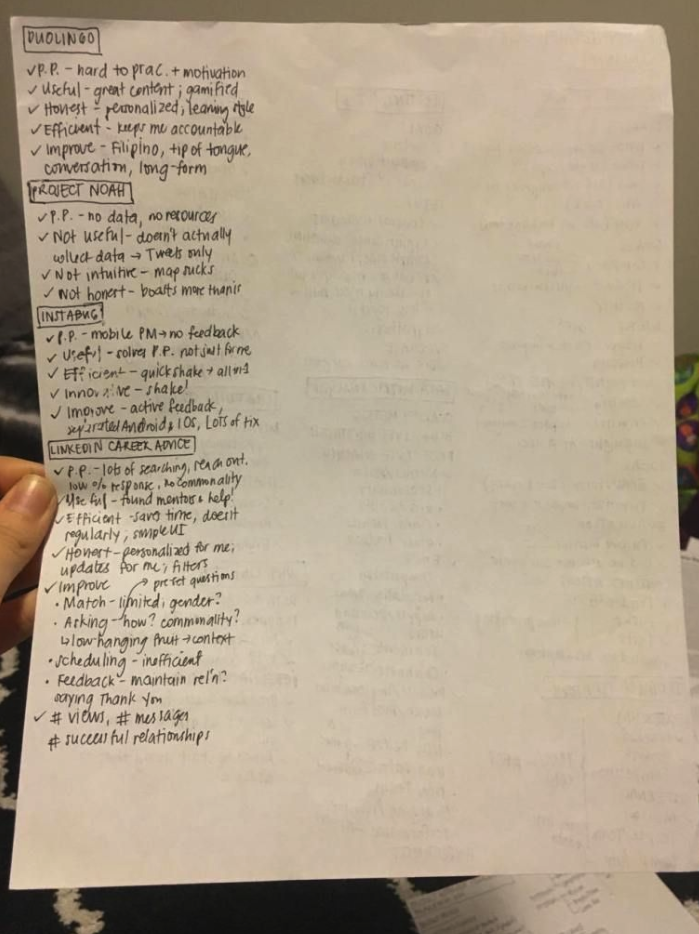 DUOLINGO
✓ P.P. - hard to prac. + motivation
✓ Useful - great content; gamified
✓ Honest - personalized, learning style
✓ Efficient - keeps me accountable
✓ Improve - Filipino, tip of tongue,
conversation, long-form
PROJECT NOAH
✓ P.P. - no data, no resources
✓ Not useful - doesn't actually
collect data → Tweets only
✓ Not intuitive - map sucks
✓ Not honest - boasts more than is
INSTABUG
✓ P.P. - mobile PM → no feedback
✓ Useful - solves P.P. not just for me
✓ Efficient - quick shake + all in 1
✓ Innovative - shake!
✓ Improve - active feedback,
separated Android & IOS, Lots of tix
LINKEDIN CAREER ADVICE
✓ P.P. - lots of searching, reach out,
low % response, no commonality
✓ Useful - found mentors & help!
✓ Efficient - saves time, does it
regularly; simple UI
✓ Honest - personalized for me;
updates for me; filters
✓ Improve → preset questions
• Match - limited, gender?
• Asking - how? commonality?
↳ low hanging fruit → context
• Scheduling - inefficient
• Feedback - maintain rel'n?
saying Thank You
✓ # views, # messages
# successful relationships